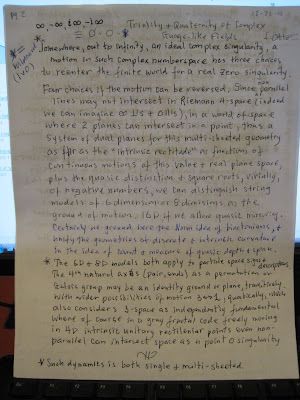 pg 2
∞, -∞, i∞ -i∞
Trinity + Quaternity of Complex
≡ 0 - 0 -
Gauge-like Fields
L. Otto
Somewhere, out to infinity, an ideal complex singularity, a
motion in such complex numberspace has three choices
to reenter the finite world for a real zero singularity.
Four choices if the motion can be reversed. Since parallel
lines may not intersect in Riemann 4-space (indeed
we can imagine ∞ 1's + 0 1's), in our world of space
where 2 planes can intersect in a point, thus a
system of dual planes for this multi-sheeted geometry
as the "intrinsic rectitude" as functions of
continuous motions of this value + real plane space
plus the quasic distinction of square roots, vivially,
of negative numbers, we can distinguish string
models of 6 dimensions 8 dimensions as the
ground of motion. 16D if we allow quasic
Certainly we ground here the idea of fractions,
unify the geometries of discrete + intrinsic curvature
in the idea of and a measure of quasic depth + span.
* The 6D + 8D models both apply to particle space
descriptions
The 4th natural axes (pair, ends) as a permutation of
Galois group may be an identity ground or plane, transitively
with wider possibilities of motion 3 ↔ 1, quasically, which
also considers 3-space as independently fundamental
where of course in a gray fractal code freely moving
in 4D intrinsic unitary rectilinear points even non-
parallel can intersect space as a point 0 singularity
* Such dynamics is both single + multi-sheeted.